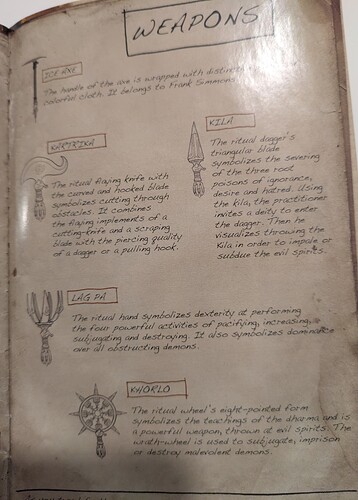 WEAPONS
ICE AXE
The handle of the axe is wrapped with
colorful cloth. It belongs to Frank Simmons.
KARTRIKA
The ritual flaying knife with
the curved and hooked blade
symbolizes cutting through
obstacles. It combines
the flaying implements of a
cutting-knife and a scraping
blade with the piercing quality
of a dagger or a pulling hook.
KILA
The ritual dagger's
triangular blade
symbolizes the severing
of the three root
poisons of ignorance,
desire and hatred. Using
the kila, the practitioner
invites a deity to enter
the dagger. Then he
visualizes throwing the
Kila in order to impale or
subdue the evil spirits.
LAG PA
The ritual hand symbolizes dexterity at performing
the four powerful activities of pacifying, increasing,
subjugating and destroying. It also symbolizes dominance
over all obstructing demons.
KHORLO
The ritual wheel's eight-pointed form
symbolizes the teachings of the dharma and is
a powerful weapon, thrown at evil spirits. The
wrath-wheel is used to subjugate, imprison
or destroy malevolent demons.